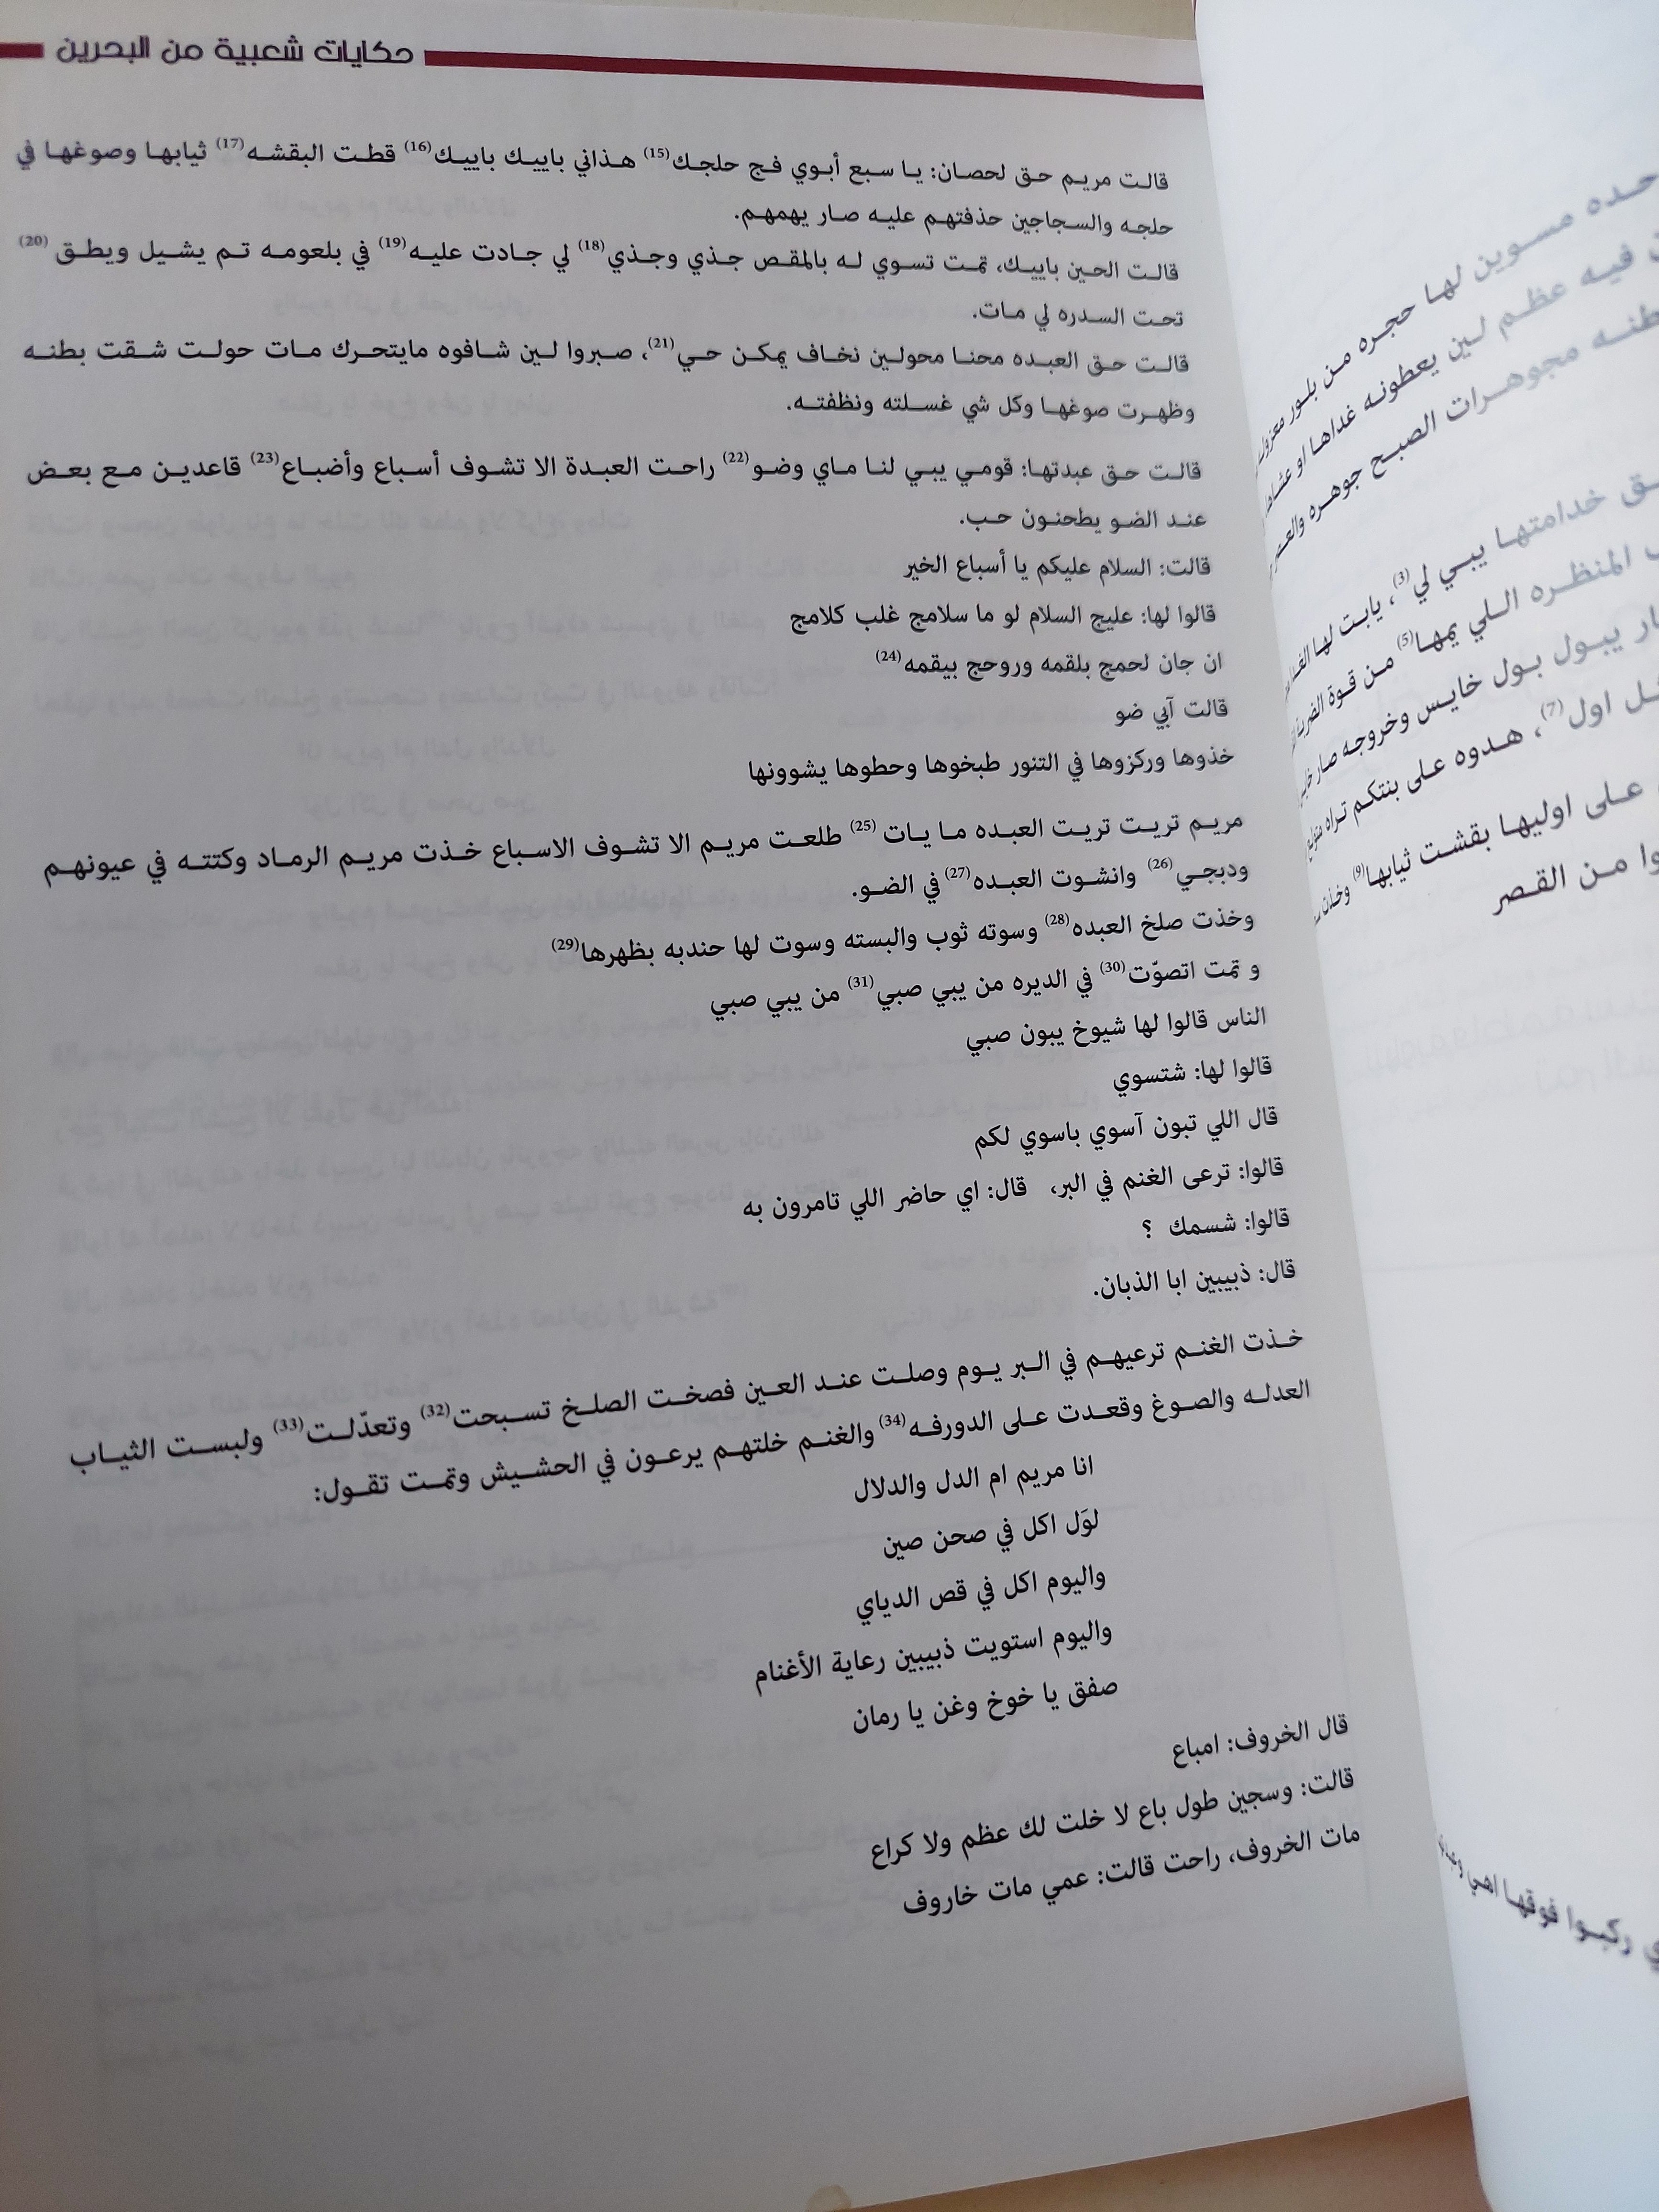 حكايات شعبية من البحرين
قالت مريم حق لحصان: يا سبع أبوي فج حلجك(15) هذاني باييك باييك(16) قطت البقشه(17) ثيابها وصوغها في
حلجه والسجاجين حذفتهم عليه صار يهمهم.
قالت الحين باييك، تمت تسوي له بالمقص جذي وجذي(18) لي جادت عليه(19) في بلعومه تم يشيل ويطق (20)
تحت السدره لي مات.
قالت حق العبده محنا محولين نخاف يمكن حي(21)، صبروا لين شافوه مايتحرك مات حولت شقت بطنه
وظهرت صوغها وكل شي غسلته ونظفته.
قالت حق عبدتها: قومي يبي لنا ماي وضو(22) راحت العبدة الا تشوف أسباع وأضباع(23) قاعدين مع بعض
عند الضو يطحنون حب.
قالت: السلام عليكم يا أسباع الخير
قالوا لها: عليج السلام لو ما سلامج غلب كلامج
ان جان لحمج بلقمه وروحج بيقمه(24)
قالت آبي ضو
خذوها وركزوها في التنور طبخوها وحطوها يشوونها
مريم تريت تريت العبده ما يات (25) طلعت مريم الا تشوف الاسباع خذت مريم الرماد وكتته في عيونهم
ودبجي(26) وانشوت العبده(27) في الضو.
وخذت صلخ العبده(28) وسوته ثوب والبسته وسوت لها حندبه بظهرها(29)
و تمت اتصوّت(30) في الديره من يبي صبي(31) من يبي صبي
الناس قالوا لها شيوخ يبون صبي
قالوا لها: شتسوي
قال اللي تبون آسوي باسوي لكم
قالوا: ترعى الغنم في البر، قال: اي حاضر اللي تامرون به
قالوا: شسمك ؟
قال: ذبيبين ابا الذبان.
خذت الغنم ترعيهم في البر يوم وصلت عند العين فصخت الصلخ تسبحت(32) وتعدّلت(33) ولبست الثياب
العدله والصوغ وقعدت على الدورفه(34) والغنم خلتهم يرعون في الحشيش وتمت تقول:
انا مريم ام الدل والدلال
لوَل اكل في صحن صين
واليوم اكل في قص الدياي
واليوم استويت ذبيبين رعاية الأغنام
صفق يا خوخ وغن يا رمان
قال الخروف: امباع
قالت: وسجين طول باع لا خلت لك عظم ولا كراع
مات الخروف، راحت قالت: عمي مات خاروف
حده مسوين لها حجره من بلور
فيه عظم لين يعطونه غداها او
طنه مجوهرات الصبح جوهره
ق خدامتها يبي لي(3)، يابت لها
المنظره اللي يمها(5) من قوة الضربة
ار يبول بول خايس وخروجه صار
ل اول(7)، هدوه على بنتكم تراه
على اوليها بقشت ثيابها(9) وخذت
وا من القصر
ي ركبوا فوقها اهي